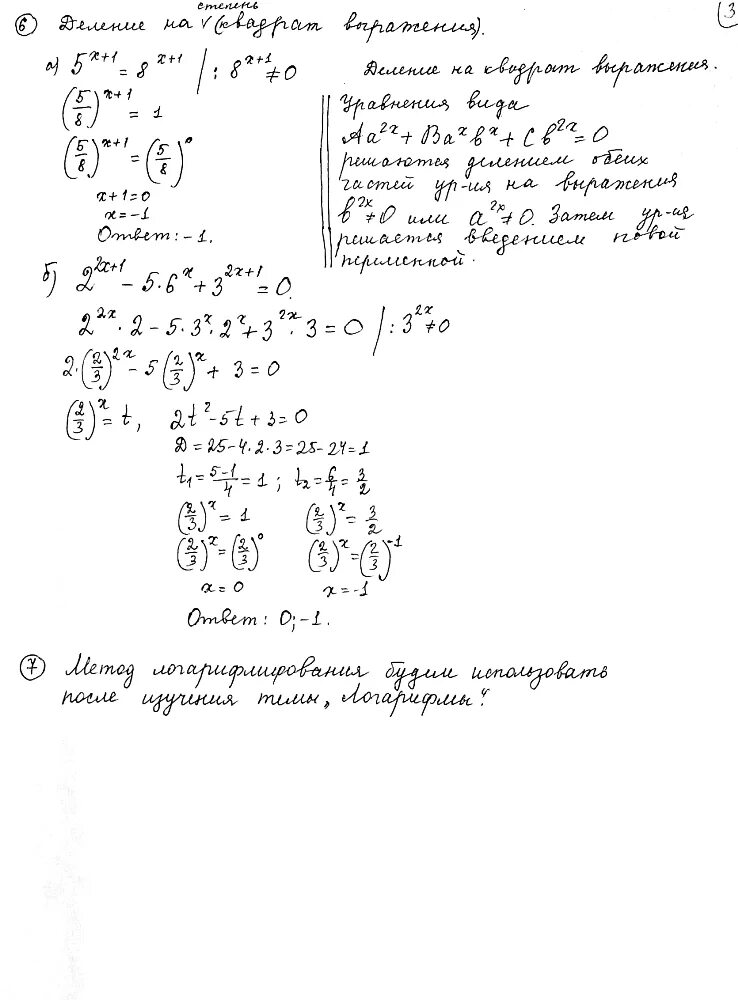 3
степень
⑥ Деление на √ (квадрат выражения).
а) 5^{x+1} = 8^{x+1} | : 8^{x+1} ≠ 0
(5/8)^{x+1} = 1
(5/8)^{x+1} = (5/8)^0
x+1=0
x=-1
Ответ: -1.
Деление на квадрат выражения.
Уравнения вида
Aa^{2x} + Ba^x b^x + Cb^{2x} = 0
решаются делением обеих
частей ур-ия на выражения
b^{2x} ≠ 0 или a^{2x} ≠ 0. Затем ур-ия
решается введением новой
переменной.
б) 2^{2x+1} - 5·6^x + 3^{2x+1} = 0.
2^{2x}·2 - 5·3^x·2^x + 3^{2x}·3 = 0 | : 3^{2x} ≠ 0
2·(2/3)^{2x} - 5(2/3)^x + 3 = 0
(2/3)^x = t, 2t^2 - 5t + 3 = 0
Д = 25-4·2·3 = 25-24 = 1
t_1 = (5-1)/4 = 1 ; t_2 = 6/4 = 3/2
(2/3)^x = 1 (2/3)^x = 3/2
(2/3)^x = (2/3)^0 (2/3)^x = (2/3)^{-1}
x = 0 x = -1
Ответ: 0; -1.
⑦ Метод логарифмирования будем использовать
после изучения темы „Логарифмы“.